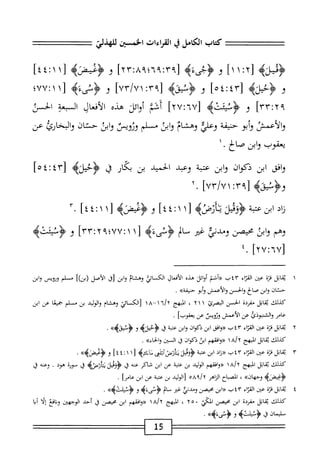 كتاب الكامل في القراءات الخمسين للهذلي
﴿قِيلَ﴾ [١١:٢] و ﴿وَجِيءَ﴾ [٦٩:٣٩؛٢٣:٨٩] و ﴿غِيضَ﴾ [٤٤:١١]
و ﴿حِيلَ﴾ [٥٤:٤٣] و ﴿سِيقَ﴾ [٧٣/٧١:٣٩] و ﴿سِيءَ﴾ [٧٧:١١؛
٣٣:٢٩] و ﴿سِيئَتْ﴾ [٢٧:٦٧] أشَمَّ أوائلَ هذه الأفعالِ السبعةِ الحسنُ
والأعمشُ وأبو حنيفة وعليٌّ وهشامٌ وابنُ مسلم ورُويسٌ وابنُ حسّان والبخاريُّ عن
يعقوب وابن صالح .١
وافق ابن ذكوان وابن عتبة وعبد الحميد بن بكّار في ﴿حُيلَ﴾ [٥٤:٤٣]
و﴿سُيقَ﴾ [٧٣/٧١:٣٩] .٢
زاد ابن عتبة ﴿وَقِيلَ يَٰأَرْضُ﴾ [٤٤:١١] و ﴿غِيضَ﴾ [٤٤:١١] .٣
وهم وابنُ محيصن ومدنيٌّ غير سالم ﴿سِيءَ﴾ [٧٧:١١؛٣٣:٢٩] و ﴿سِيئَتْ﴾
[٢٧:٦٧] .٤
١ يُقابَل قرّة عين القرّاء ٤٣ب «أشمّ أوائل هذه الأفعال الكسائيُّ وهشامٌ وابن [في الأصل (بن)] مسلم ورويس وابن
حسّان وابن صالح والحسن والأعمش وأبو حنيفة» .
كذلك يُقابَل مفردة الحسن البصريّ ٢١١ ، المبهج ١٦/٢-١٨ [الكسائيّ وهشام والوليد بن مسلم جميعًا عن ابن
عامر والشنبوذيُّ عن الأعمش ورُويسٌ عن يعقوب] .
٢ يُقابَل قرّة عين القرّاء ٤٣ب «وافق ابن ذكوان وابن عتبة في ﴿حُيلَ﴾ و ﴿سُيقَ﴾» .
كذلك يُقابَل المبهج ١٨/٢ «وافقهم ابنُ ذكوان في السين والحاء» .
٣ يُقابَل قرّة عين القرّاء ٤٣ب «زاد ابن عتبة ﴿وَقِيلَ يَٰأَرْضُ ابْلَعِى مَاءَكِ﴾ [٤٤:١١] و ﴿غِيضَ﴾» .
كذلك يُقابَل المبهج ١٨/٢ «وافقهم الوليد بن عتبة عن ابن شاكر عنه في ﴿وَقِيلَ يَٰأَرْضُ﴾ في سورة هود . وعنه في
﴿غِيضَ﴾ وجهان» ، المصباح الزاهر ٥٨٩/٢ [الوليد بن عتبة عن ابن عامر] .
٤ يُقابَل قرّة عين القرّاء ٤٣ب «ابن محيصن ومدنيٌّ غير سالم ﴿سِيءَ﴾ و ﴿سِيئَتْ﴾» .
كذلك يُقابَل مفردة ابن محيصن المكّيّ ٢٥٠ ، المبهج ١٨/٢ «وافقهم ابن محيصن في أحد الوجهين ونافعٌ إلّا أبا
سليمان في ﴿سِيئَتْ﴾ و ﴿سِيءَ﴾» .
15